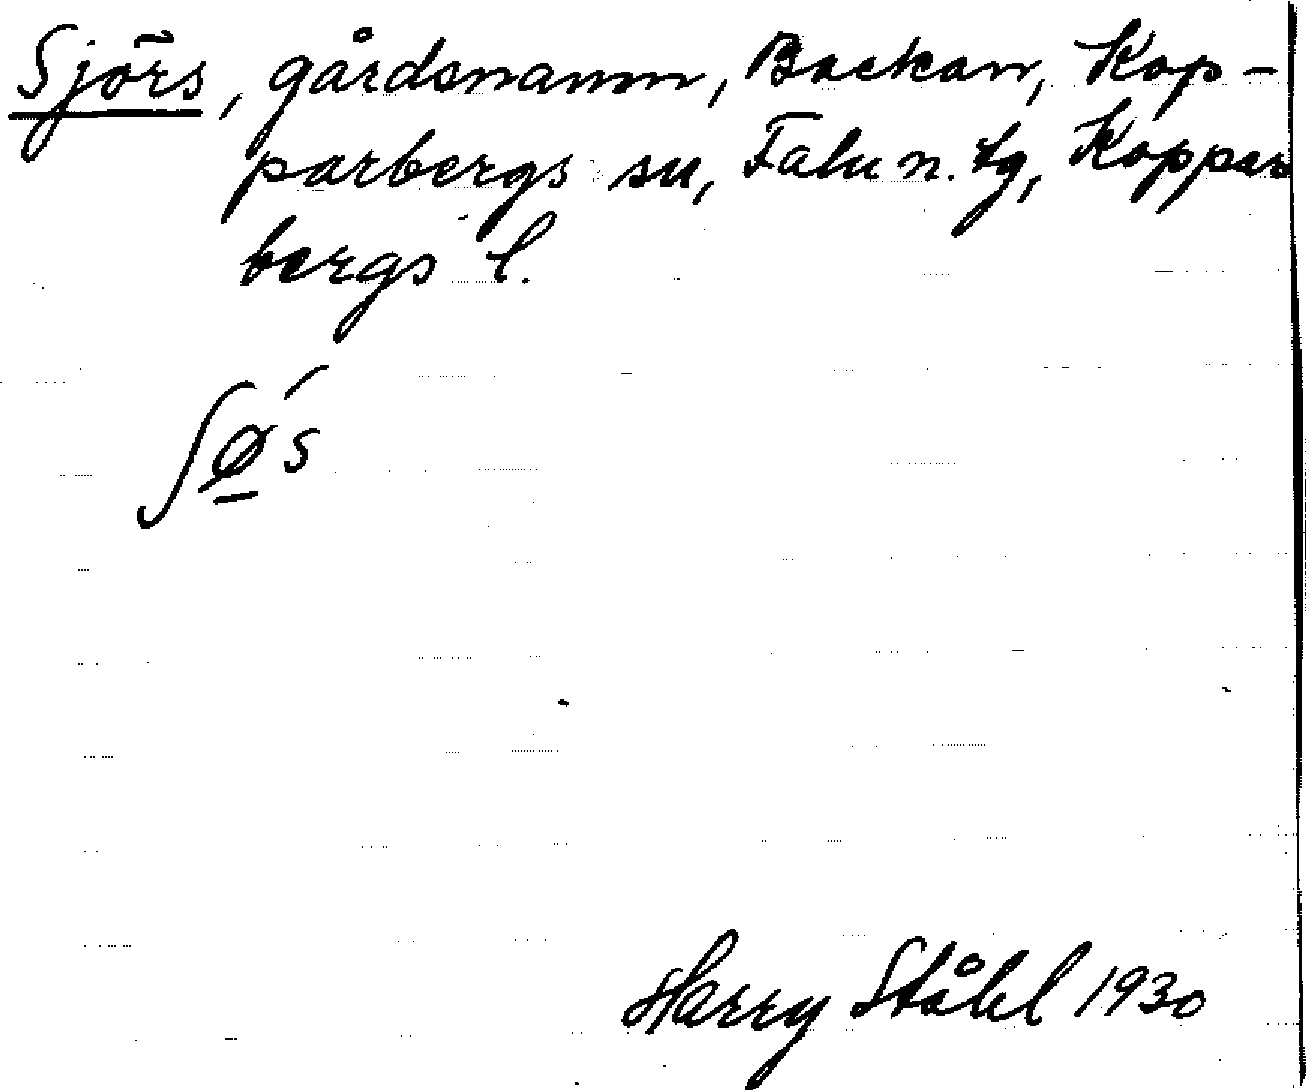 Sjörs, gårdsnamn, Backan, Kop-
parbergs sn, Falu n. tg, Koppar
bergs l.
ʃǿ̱s
Harry Ståhl 1930